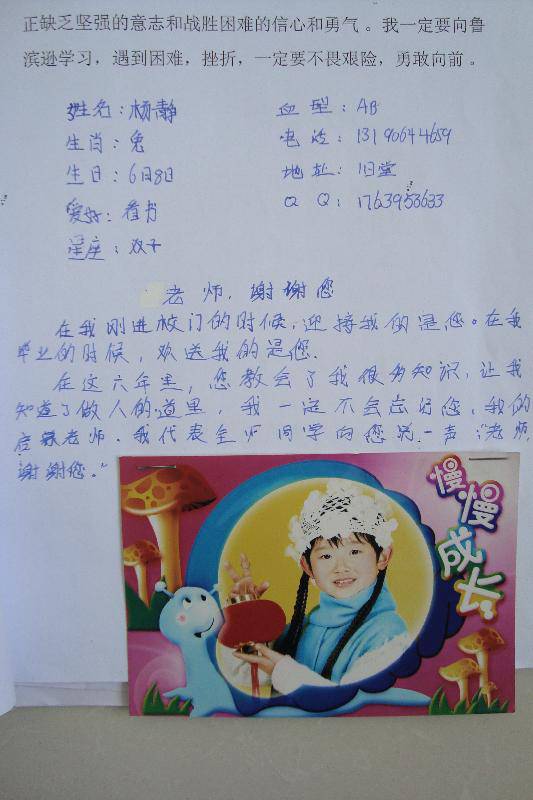 正缺乏坚强的意志和战胜困难的信心和勇气。我一定要向鲁
滨逊学习，遇到困难，挫折，一定要不畏艰险，勇敢向前。
姓名：杨静
血型：AB
生肖：兔
电话：13190644659
生日：6月8日
地址：旧堂
爱好：看书
QQ：1763953633
星座：双子
老师，谢谢您
在我刚进校门的时候，迎接我的是您。在我
毕业的时候，欢送我的是您.
在这六年里，您教会了我很多知识，让我
知道了做人的道理，我一定不会忘记您，我的
启蒙老师．我代表全班同学向您说一声："老师，
谢谢您。"
慢慢成长